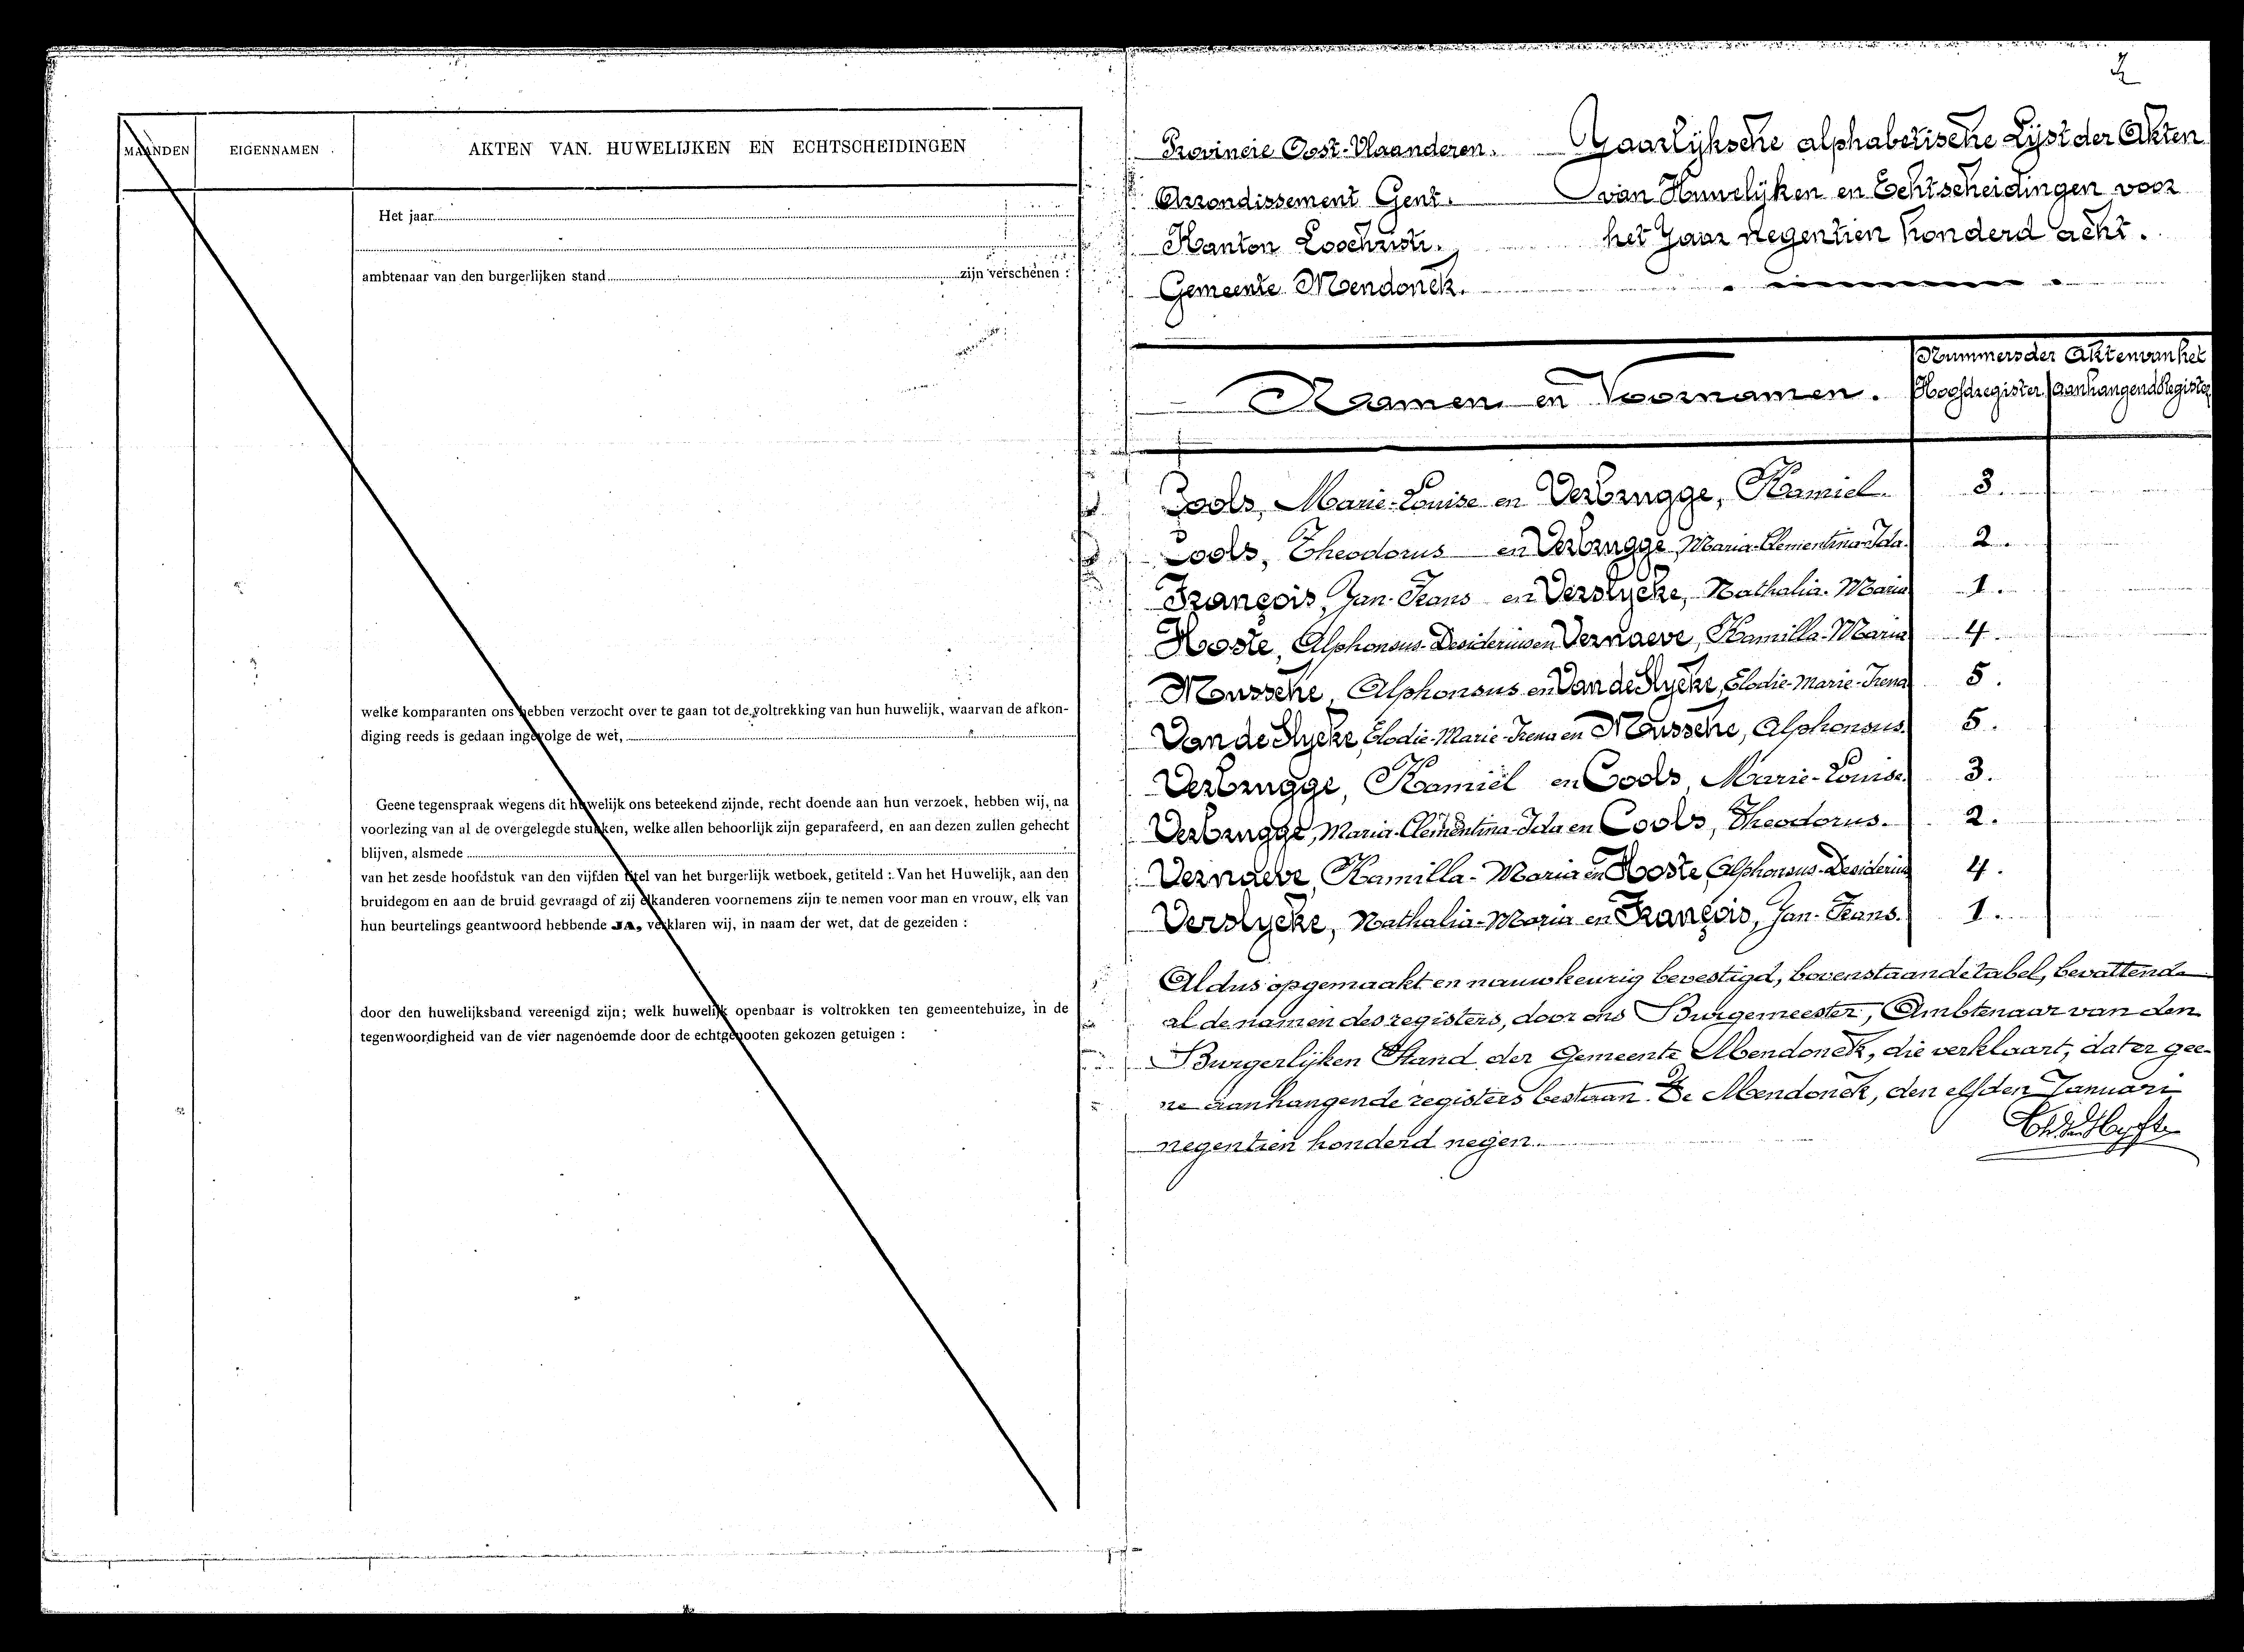 MAANDEN EIGENNAMEN . AKTEN VAN. HUWELIJKEN EN ECHTSCHEIDINGEN
Het jaar
ambtenaar van den burgerlijken stand zijn verschenen :
welke komparanten ons hebben verzocht over te gaan tot de voltrekking van hun huwelijk, waarvan de afkon-
diging reeds is gedaan ingevolge de wet,
Geene tegenspraak wegens dit huwelijk ons beteekend zijnde, recht doende aan hun verzoek, hebben wij, na
voorlezing van al de overgelegde stukken, welke allen behoorlijk zijn geparafeerd, en aan dezen zullen gehecht
blijven, alsmede
van het zesde hoofdstuk van den vijfden titel van het burgerlijk wetboek, getiteld : Van het Huwelijk, aan den
bruidegom en aan de bruid gevraagd of zij elkanderen voornemens zijn te nemen voor man en vrouw, elk van
hun beurtelings geantwoord hebbende JA, verklaren wij, in naam der wet, dat de gezeiden :
door den huwelijksband vereenigd zijn; welk huwelijk openbaar is voltrokken ten gemeentehuize, in de
tegenwoordigheid van de vier nagenoemde door de echtgenooten gekozen getuigen :
2
Provincie Oost-Vlaanderen.
Arrondissement Gent.
Kanton Loochristi.
Gemeente Mendonck.
Jaarlijksche alphabetische Lijst der Akten
van Huwelijken en Echtscheidingen voor
het Jaar negentien honderd acht.
Naamen en Voornamen.
Nummers der Akten van het
Hoofdregister. Aanhangend Register
Cools, Marie-Louise en Verbrugge, Kamiel. 3.
Cools, Theodorus en Verbrugge, Maria-Clementina-Ida. 2.
François, Jan-Frans en Verslycke, Nathalia-Maria 1.
Hoste, Alphonsus-Desiderius en Vernaeve, Kamilla-Maria 4.
Moussche, Alphonsus en Van de Slycke, Elodie-Marie-Irena 5.
Van de Slycke, Elodie-Marie-Irena en Moussche, Alphonsus. 5.
Verbrugge, Kamiel en Cools, Marie-Louise. 3.
Verbrugge, Maria-Clementina-Ida en Cools, Theodorus. 2.
Vernaeve, Kamilla-Maria en Hoste, Alphonsus-Desiderius 4.
Verslycke, Nathalia-Maria en François, Jan-Frans. 1.
Aldus opgemaakt en nauwkeurig bevestigd, bovenstaande tabel, bevattende
al de namen des registers, door ons Burgemeester, Ambtenaar van den
Burgerlijken Stand der Gemeente Mendonck, die verklaart, dat er gee-
ne aanhangende registers bestaan. Te Mendonck, den elfden Januari
negentien honderd negen.